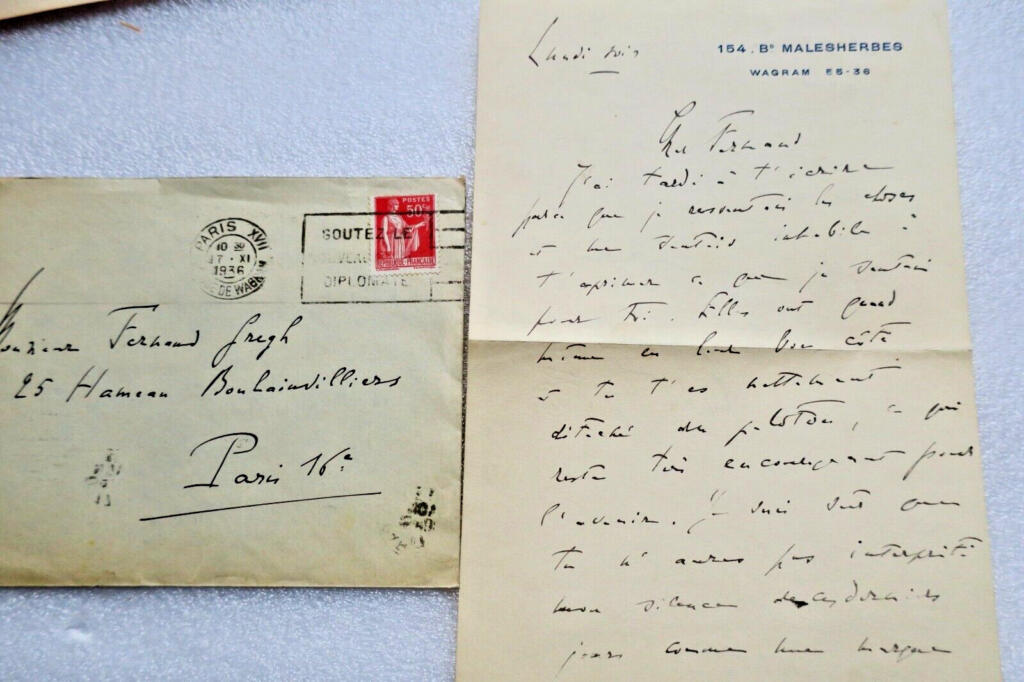 PARIS XVII
10
17 · XI
1936
DE WAGRAM
GOUTEZ LE
NOUVEAU
DIPLOMATE
POSTES
50c
REPUBLIQUE FRANCAISE
Monsieur Fernand Gregh
25 Hameau Boulainvilliers
Paris 16e
Lundi soir
154. Bd MALESHERBES
WAGRAM 55-36
Cher Fernand
J'ai tardé à t'écrire
parce que je ressentais les choses
et me sentais inhabile à
t'exprimer ce que je sentais
pour toi. Elles ont quand
même eu leur bon côté
et tu t'es nettement
détaché du peloton, ce qui
reste très encourageant pour
l'avenir. Je suis sûr que
tu n'auras pas interprété
mon silence de ces derniers
jours comme une marque